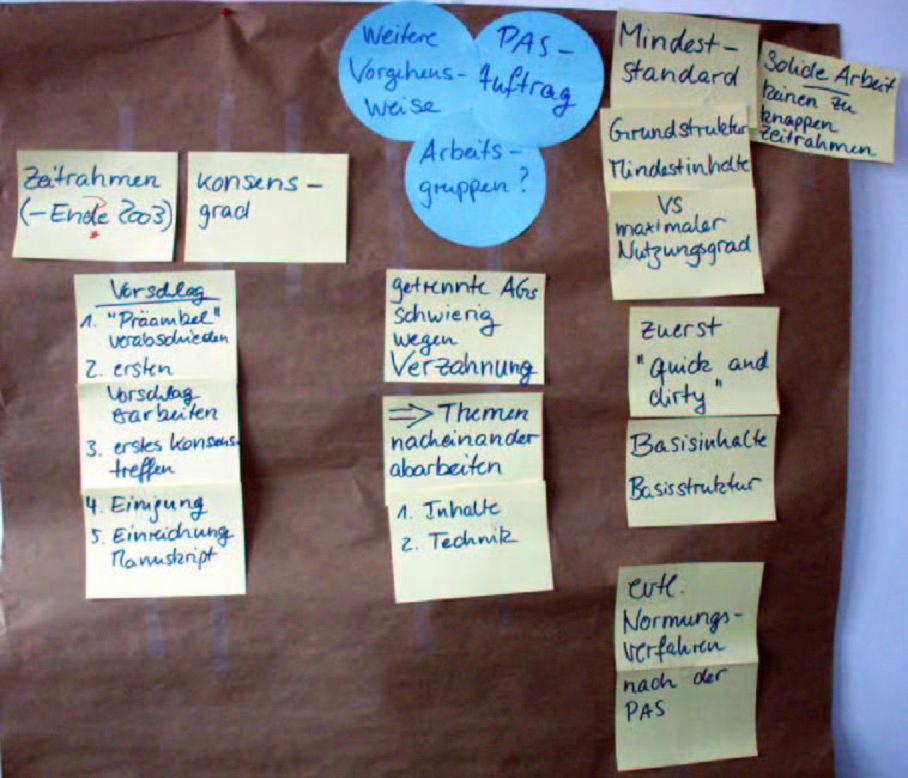 Weitere
Vorgehens-
weise
PAS-
Auftrag
Arbeits-
gruppen?
Mindest-
standard
Solide Arbeit
keinen zu
knappen
Zeitrahmen
Grundstruktur
Mindestinhalte
VS
maximaler
Nutzungsgrad
Zeitrahmen
(-Ende 2003)
Konsens-
grad
Vorschlag
1. "Präambel"
verabschieden
2. ersten
Vorschlag
erarbeiten
3. erstes Konsens-
treffen
4. Einigung
5. Einreichung
Manuskript
getrennte AGs
schwierig
wegen
Verzahnung
⇒ Themen
nacheinander
abarbeiten
1. Inhalte
2. Technik
zuerst
"quick and
dirty"
Basisinhalte
Basisstruktur
evtl.
Normungs-
verfahren
nach der
PAS